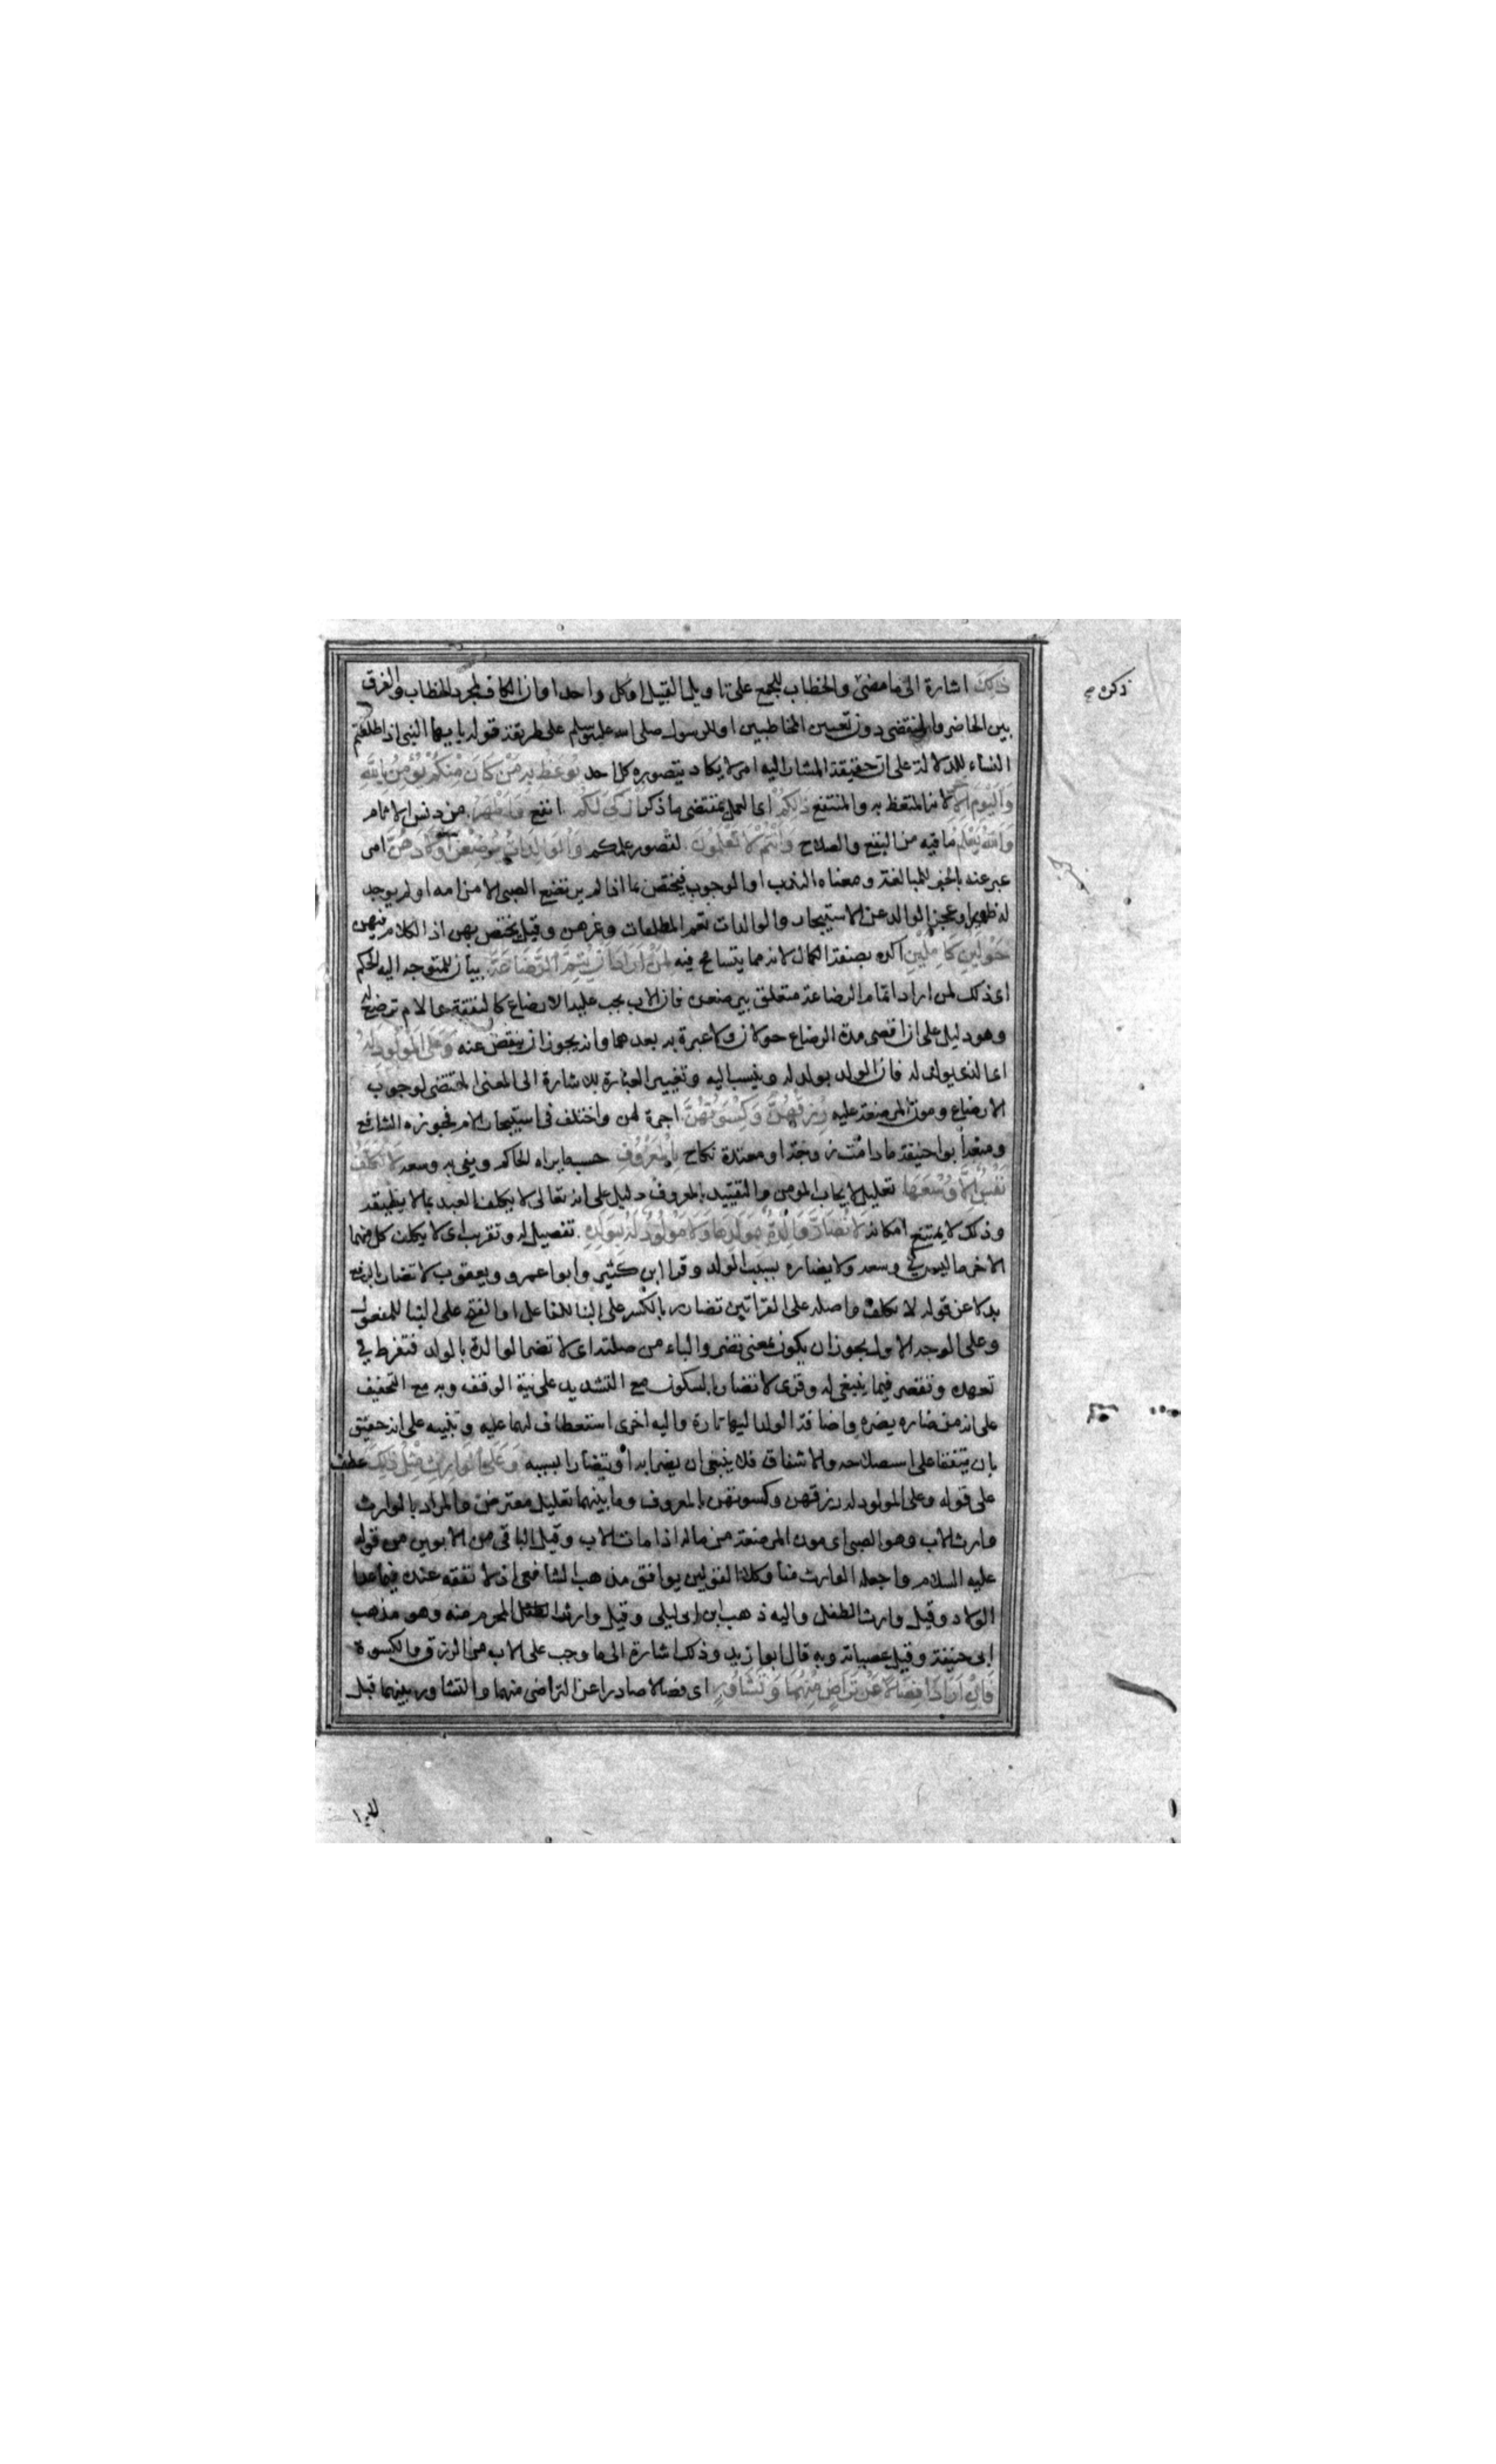 ذلك اشارة الى ما مضى والخطاب للجمع على تاويل القبيل او كل واحد او ان الكاف لمجرد الخطاب والفرق
بين الحاضر والمنقضى دون تعيين المخاطبين او للرسول صلى الله عليه وسلم على طريقة قوله يا ايها النبى اذا طلقتم
النساء للدلالة على ان حقيقة المشار اليه امر لا يكاد يتصوره كل احد يوعظ به من كان منكم يؤمن بالله
واليوم الآخر لانه المتعظ به والمنتفع ذلكم اى العمل بمقتضى ما ذكر ازكى لكم انفع واطهر من دنس الاثام
والله يعلم ما فيه من النفع والصلاح وانتم لا تعلمون لقصور علمكم والوالدات يرضعن اولادهن امر
عبر عنه بالخبر للمبالغة ومعناه الندب او الوجوب فيختص بما اذا لم يرتضع الصبى الا من امه او لم يوجد
له ظهير او عجز الوالد عن الاستيجار والوالدات تعم المطلقات وغيرهن وقيل يختص بهن اذ الكلام فيهن
حولين كاملين اكده بصفة الكمال لانه مما يتسامح فيه لمن اراد ان يتم الرضاعة بيان للمتوجه اليه الحكم
اى ذلك لمن اراد اتمام الرضاعة متعلق بيرضعن فان الاب يجب عليه الارضاع كالنفقة والام ترضع له
وهو دليل على ان اقصى مدة الرضاع حولان ولا عبرة به بعدهما وانه يجوز ان ينقص عنه وعلى المولود له
اى الذى يولد له فان الولد يولد له وينسب اليه وتغيير العبارة للاشارة الى المعنى المقتضى لوجوب
الارضاع ومون المرضعة عليه رزقهن وكسوتهن اجرة لهن واختلف فى استيجار الام فجوزه الشافع
ومنعه ابو حنيفة ما دامت زوجة او معتدة نكاح بالمعروف حسبما يراه الحاكم ويفى به وسعه لا تكلف
نفس الا وسعها تعليل لايجاب المون والتقييد بالمعروف دليل على انه تعالى لا يكلف العبد بما لا يطيقه
وذلك لا يمتنع امكانه لا تضار والدة بولدها ولا مولود له بولده تفصيل له وتقريب اى لا يكلف كل منهما
الاخر ما ليس فى وسعه ولا يضاره بسبب الولد وقرا ابن كثير وابو عمرو ويعقوب لا تضار بالرفع
بدلا عن قوله لا تكلف واصله على القراتين تضارر بالكسر على البنا للفاعل او الفتح على البنا للمفعول
وعلى الوجه الاول يجوز ان يكون بمعنى تضر والباء من صلته اى لا تضر الوالدة بالولد فتفرط فى
تعهده وتقصر فيما ينبغى له وقرى لا تضار بالسكون مع التشديد على نية الوقف وبه مع التخفيف
على انه من ضاره يضره واضافة الولد اليها تارة واليه اخرى استعطاف لهما عليه وتنبيه على انه حقيق
بان يتفقا على استصلاحه والاشفاق فلا ينبغى ان يضرا به او يتضارا بسببه وعلى الوارث مثل ذلك عطف
على قوله وعلى المولود له رزقهن وكسوتهن بالمعروف وما بينهما تعليل معترض والمراد بالوارث
وارث الاب وهو الصبى اى مون المرضعة من ماله اذا مات الاب وقيل الباقى من الابوين من قوله
عليه السلام واجعله الوارث منا وكلا القولين يوافق مذهب الشافعى اذ لا نفقه عنده فيما عدا
الولاد وقيل وارث الطفل واليه ذهب ابن ابى ليلى وقيل وارثه المحرم منه وهو مذهب
ابى حنيفة وقيل عصباته وبه قال ابو زيد وذلك اشارة الى ما وجب على الاب من الرزق والكسوة
فان ارادا فصالا عن تراض منهما وتشاور اى فصالا صادرا عن التراضى منهما والتشاور بينهما قبل